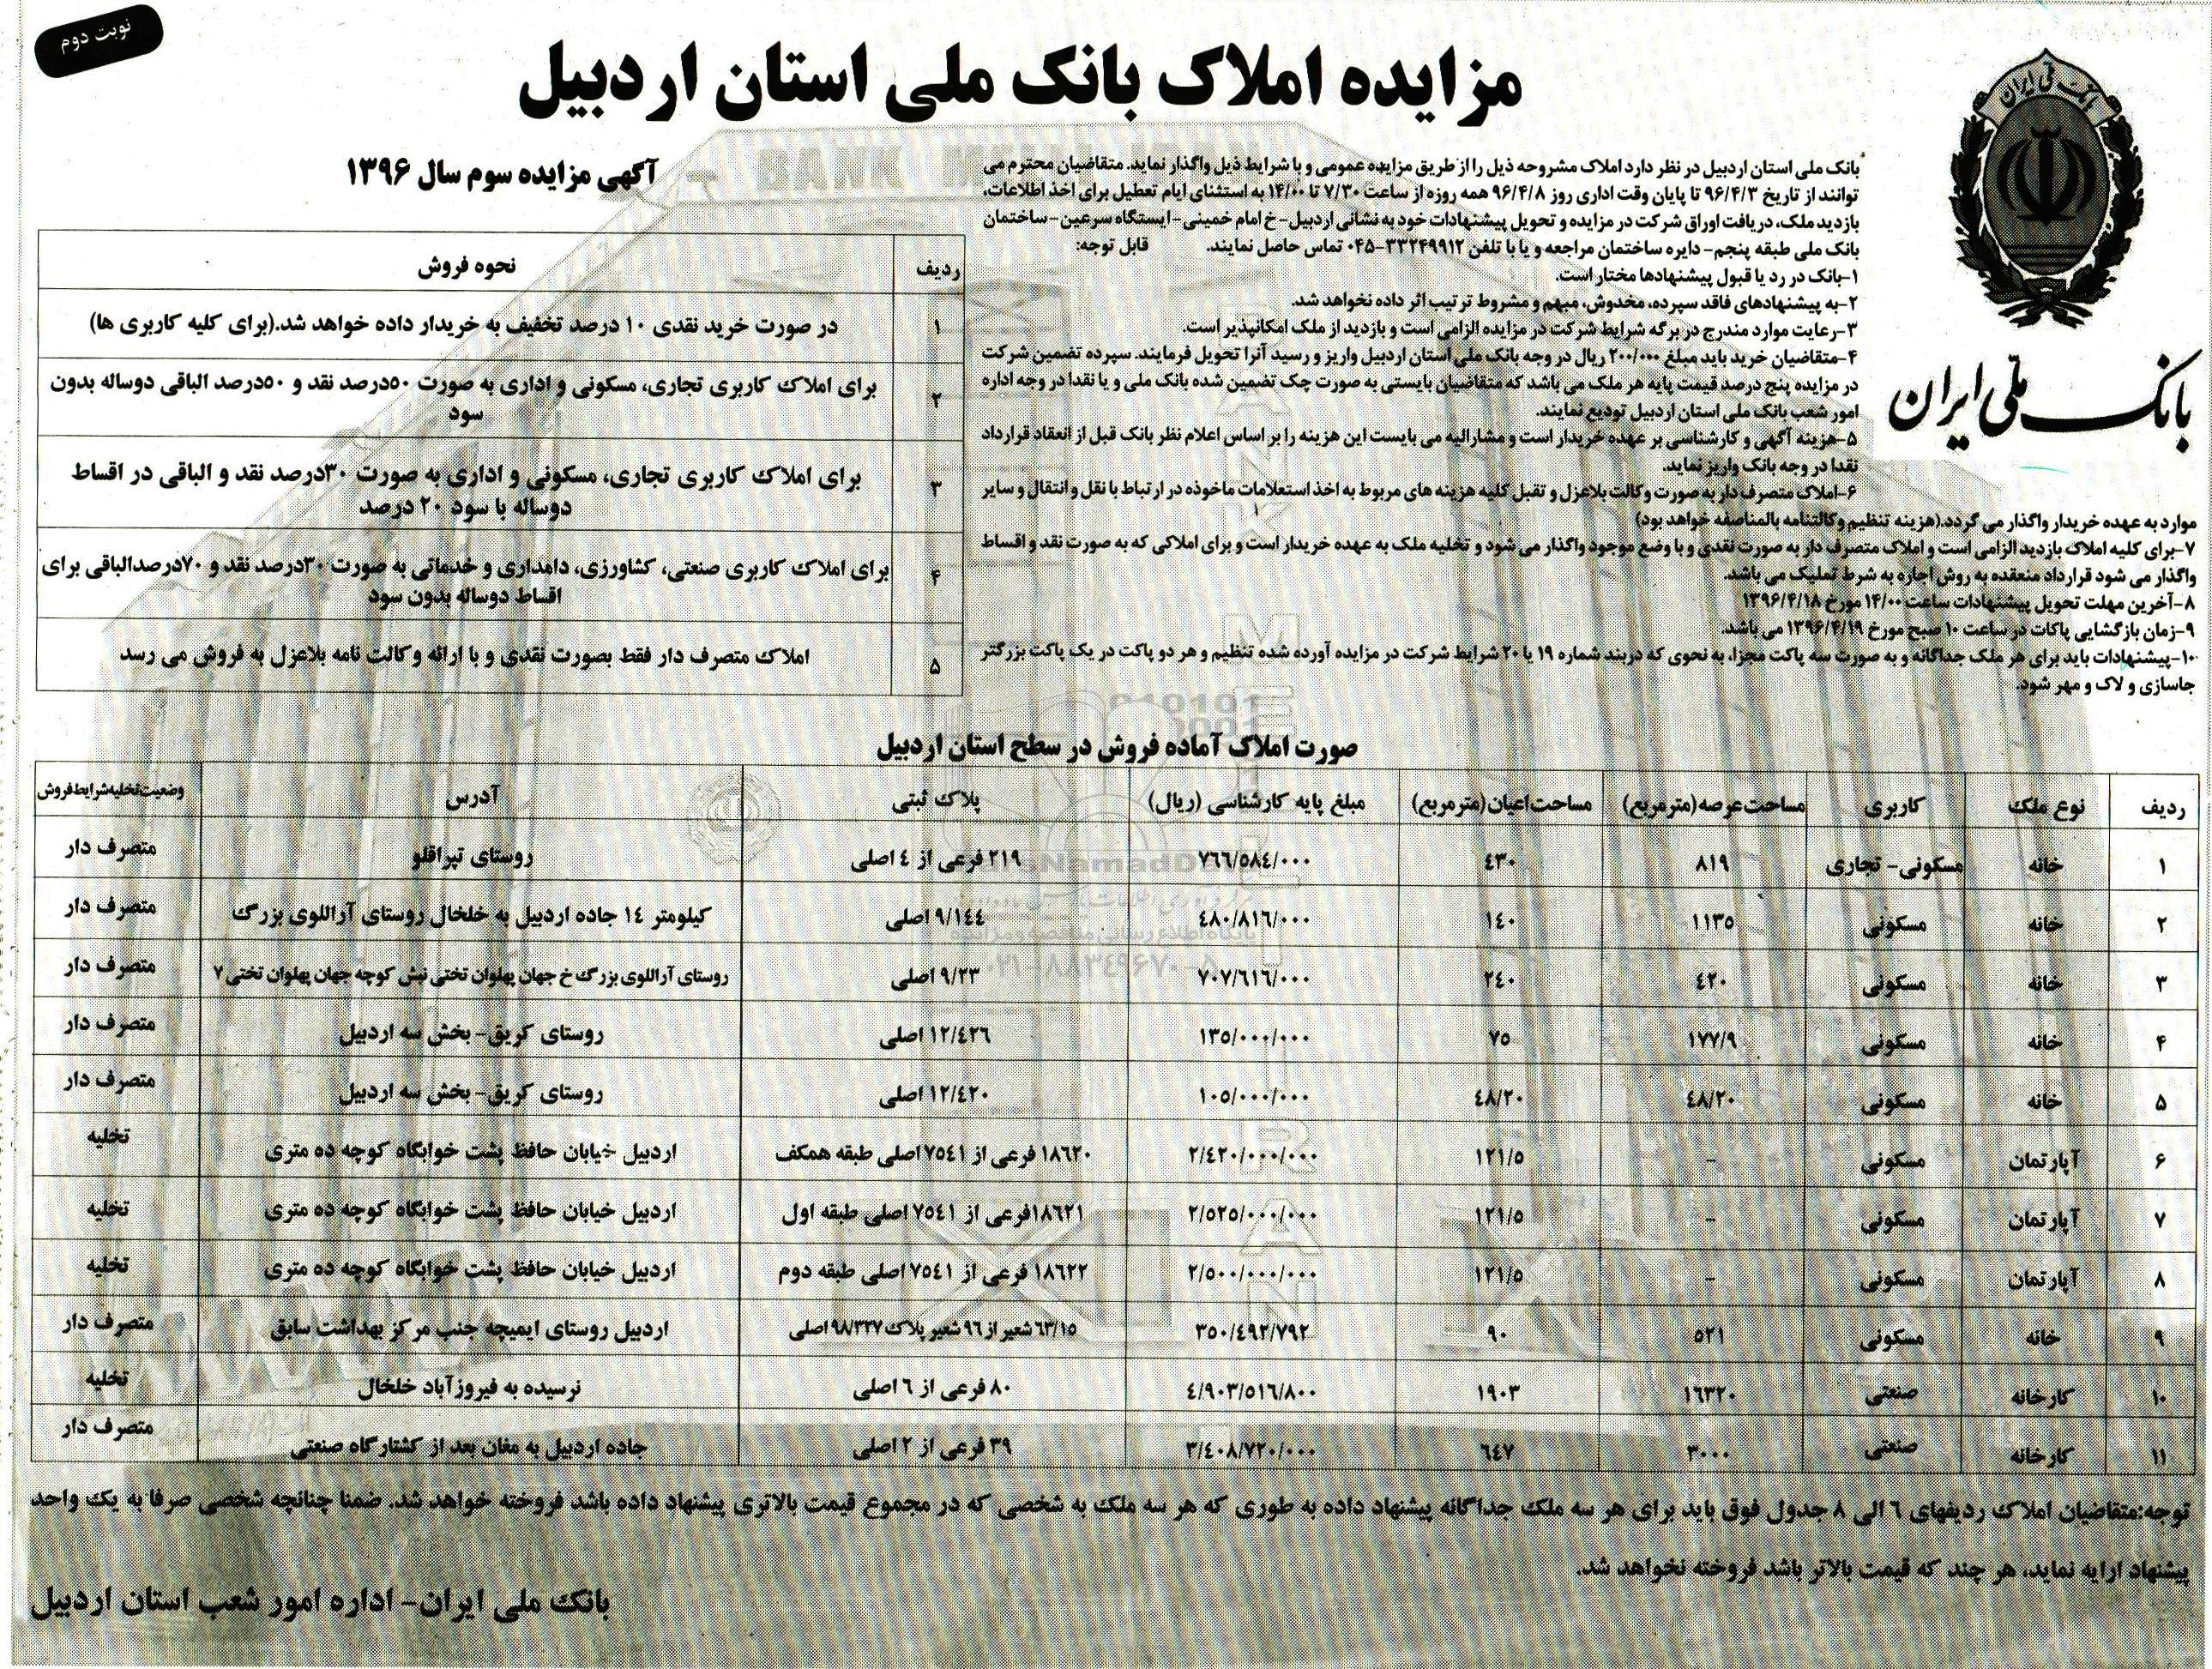 نوبت دوم
مزایده املاک بانک ملی استان اردبیل
بانک ملی ایران
بانک ملی ایران
بانک ملی استان اردبیل در نظر دارد املاک مشروحه ذیل را از طریق مزایده عمومی و با شرایط ذیل واگذار نماید. متقاضیان محترم می
توانند از تاریخ ۹۶/۴/۳ تا پایان وقت اداری روز ۹۶/۴/۸ همه روزه از ساعت ۷/۳۰ تا ۱۴/۰۰ به استثنای ایام تعطیل برای اخذ اطلاعات،
بازدید ملک، دریافت اوراق شرکت در مزایده و تحویل پیشنهادات خود به نشانی اردبیل-خ امام خمینی-ایستگاه سرعین-ساختمان
بانک ملی طبقه پنجم-دایره ساختمان مراجعه و یا با تلفن ۳۳۲۴۹۹۱۲-۰۴۵ تماس حاصل نمایند. قابل توجه:
۱-بانک در رد یا قبول پیشنهادها مختار است.
۲-به پیشنهادهای فاقد سپرده، مخدوش، مبهم و مشروط ترتیب اثر داده نخواهد شد.
۳-رعایت موارد مندرج در برگه شرایط شرکت در مزایده الزامی است و بازدید از ملک امکانپذیر است.
۴-متقاضیان خرید باید مبلغ ۲۰۰/۰۰۰ ریال در وجه بانک ملی استان اردبیل واریز و رسید آنرا تحویل فرمایند. سپرده تضمین شرکت
در مزایده پنج درصد قیمت پایه هر ملک می باشد که متقاضیان بایستی به صورت چک تضمین شده بانک ملی و یا نقدا در وجه اداره
امور شعب بانک ملی استان اردبیل تودیع نمایند.
۵-هزینه آگهی و کارشناسی بر عهده خریدار است و مشارالیه می بایست این هزینه را بر اساس اعلام نظر بانک قبل از انعقاد قرارداد
نقدا در وجه بانک واریز نماید.
۶-املاک متصرف دار به صورت وکالت بلاعزل و تقبل کلیه هزینه های مربوط به اخذ استعلامات ماخوذه در ارتباط با نقل و انتقال و سایر
موارد به عهده خریدار واگذار می گردد.(هزینه تنظیم وکالتنامه بالمناصفه خواهد بود)
۷-برای کلیه املاک بازدید الزامی است و املاک متصرف دار به صورت نقدی و با وضع موجود واگذار می شود و تخلیه ملک به عهده خریدار است و برای املاکی که به صورت نقد و اقساط
واگذار می شود قرارداد منعقده به روش اجاره به شرط تملیک می باشد.
۸-آخرین مهلت تحویل پیشنهادات ساعت ۱۴/۰۰ مورخ ۱۳۹۶/۴/۱۸
۹-زمان بازگشایی پاکات در ساعت ۱۰ صبح مورخ ۱۳۹۶/۴/۱۹ می باشد.
۱۰-پیشنهادات باید برای هر ملک جداگانه و به صورت سه پاکت مجزا، به نحوی که در بند شماره ۱۹ یا ۲۰ شرایط شرکت در مزایده آورده شده تنظیم و هر دو پاکت در یک پاکت بزرگتر
جاسازی و لاک و مهر شود.
آگهی مزایده سوم سال ۱۳۹۶
ردیف نحوه فروش
۱ در صورت خرید نقدی ۱۰ درصد تخفیف به خریدار داده خواهد شد.(برای کلیه کاربری ها)
۲ برای املاک کاربری تجاری، مسکونی و اداری به صورت ۵۰درصد نقد و ۵۰درصد الباقی دوساله بدون
سود
۳ برای املاک کاربری تجاری، مسکونی و اداری به صورت ۳۰درصد نقد و الباقی در اقساط
دوساله با سود ۲۰ درصد
۴ برای املاک کاربری صنعتی، کشاورزی، دامداری و خدماتی به صورت ۳۰درصد نقد و ۷۰درصدالباقی برای
اقساط دوساله بدون سود
۵ املاک متصرف دار فقط بصورت نقدی و با ارائه وکالت نامه بلاعزل به فروش می رسد
صورت املاک آماده فروش در سطح استان اردبیل
ردیف نوع ملک کاربری مساحت عرصه(مترمربع) مساحت اعیان(مترمربع) مبلغ پایه کارشناسی (ریال) پلاک ثبتی آدرس وضعیت تخلیه شرایط فروش
۱ خانه مسکونی-تجاری ۸۱۹ ۴۳۰ ۷۶۶/۵۸۴/۰۰۰ ۲۱۹ فرعی از ۴ اصلی روستای تپراقلو متصرف دار
۲ خانه مسکونی ۱۱۳۵ ۱۴۰ ۴۸۰/۸۱۶/۰۰۰ ۹/۱۴۴ اصلی کیلومتر ۱۴ جاده اردبیل به خلخال روستای آراللوی بزرگ متصرف دار
۳ خانه مسکونی ۴۲۰ ۲۴۰ ۷۰۷/۶۱۶/۰۰۰ ۹/۲۳ اصلی روستای آراللوی بزرگ خ جهان پهلوان تختی نبش کوچه جهان پهلوان تختی ۷ متصرف دار
۴ خانه مسکونی ۱۷۷/۹ ۷۵ ۱۳۵/۰۰۰/۰۰۰ ۱۲/۴۲۶ اصلی روستای کریق-بخش سه اردبیل متصرف دار
۵ خانه مسکونی ۴۸/۲۰ ۴۸/۲۰ ۱۰۵/۰۰۰/۰۰۰ ۱۲/۴۲۰ اصلی روستای کریق-بخش سه اردبیل متصرف دار
۶ آپارتمان مسکونی - ۱۲۱/۵ ۲/۴۲۰/۰۰۰/۰۰۰ ۱۸۶۲۰ فرعی از ۷۵۴۱ اصلی طبقه همکف اردبیل خیابان حافظ پشت خوابگاه کوچه ده متری تخلیه
۷ آپارتمان مسکونی - ۱۲۱/۵ ۲/۵۲۵/۰۰۰/۰۰۰ ۱۸۶۲۱فرعی از ۷۵۴۱ اصلی طبقه اول اردبیل خیابان حافظ پشت خوابگاه کوچه ده متری تخلیه
۸ آپارتمان مسکونی - ۱۲۱/۵ ۲/۵۰۰/۰۰۰/۰۰۰ ۱۸۶۲۲ فرعی از ۷۵۴۱ اصلی طبقه دوم اردبیل خیابان حافظ پشت خوابگاه کوچه ده متری تخلیه
۹ خانه مسکونی ۵۲۱ ۹۰ ۳۵۰/۴۹۲/۷۹۲ ۶۳/۱۵ شعیر از ۹۶ شعیر پلاک ۹۸/۳۳۷ اصلی اردبیل روستای ایمیچه جنب مرکز بهداشت سابق متصرف دار
۱۰ کارخانه صنعتی ۱۶۳۲۰ ۱۹۰۳ ۴/۹۰۳/۵۱۶/۸۰۰ ۸۰ فرعی از ۶ اصلی نرسیده به فیروزآباد خلخال تخلیه
۱۱ کارخانه صنعتی ۳۰۰۰ ۶۴۷ ۳/۴۰۸/۷۲۰/۰۰۰ ۳۹ فرعی از ۲ اصلی جاده اردبیل به مغان بعد از کشتارگاه صنعتی متصرف دار
توجه:متقاضیان املاک ردیفهای ۶ الی ۸ جدول فوق باید برای هر سه ملک جداگانه پیشنهاد داده به طوری که هر سه ملک به شخصی که در مجموع قیمت بالاتری پیشنهاد داده باشد فروخته خواهد شد. ضمنا چنانچه شخصی صرفا به یک واحد
پیشنهاد ارایه نماید، هر چند که قیمت بالاتر باشد فروخته نخواهد شد.
بانک ملی ایران- اداره امور شعب استان اردبیل